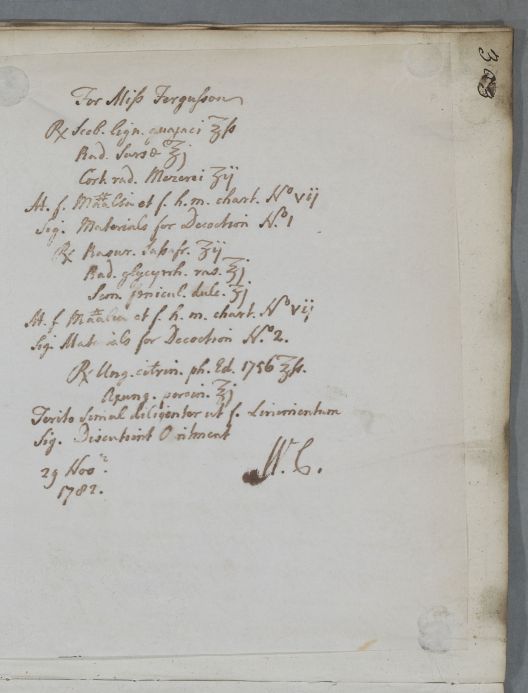 303
For Miss Fergusson
℞ Scob. lign. guajaci ℥ss
Rad. Sarsæ ℥j
Cort. rad. Mezerei ʒij
M. f. Mââlia et f. h. m. chart. No vij
Sig. Materials for Decoction No. 1
℞ Rasur. Sassafr. ʒij
Rad. glycyrrh. ras. ℥j
Sem. fœnicul. dulc. ʒj
M. f. Mââlia et f. h. m. chart. No vij
Sig. Materials for Decoction No. 2.
℞ Ung. citrin. ph. Ed. 1756 ℥ss.
Axung. porcin. ℥j
Terito Simul diligenter ut f. Linimentum
Sig. Discutient Ointment
29 Novr.
1782.
W. C.